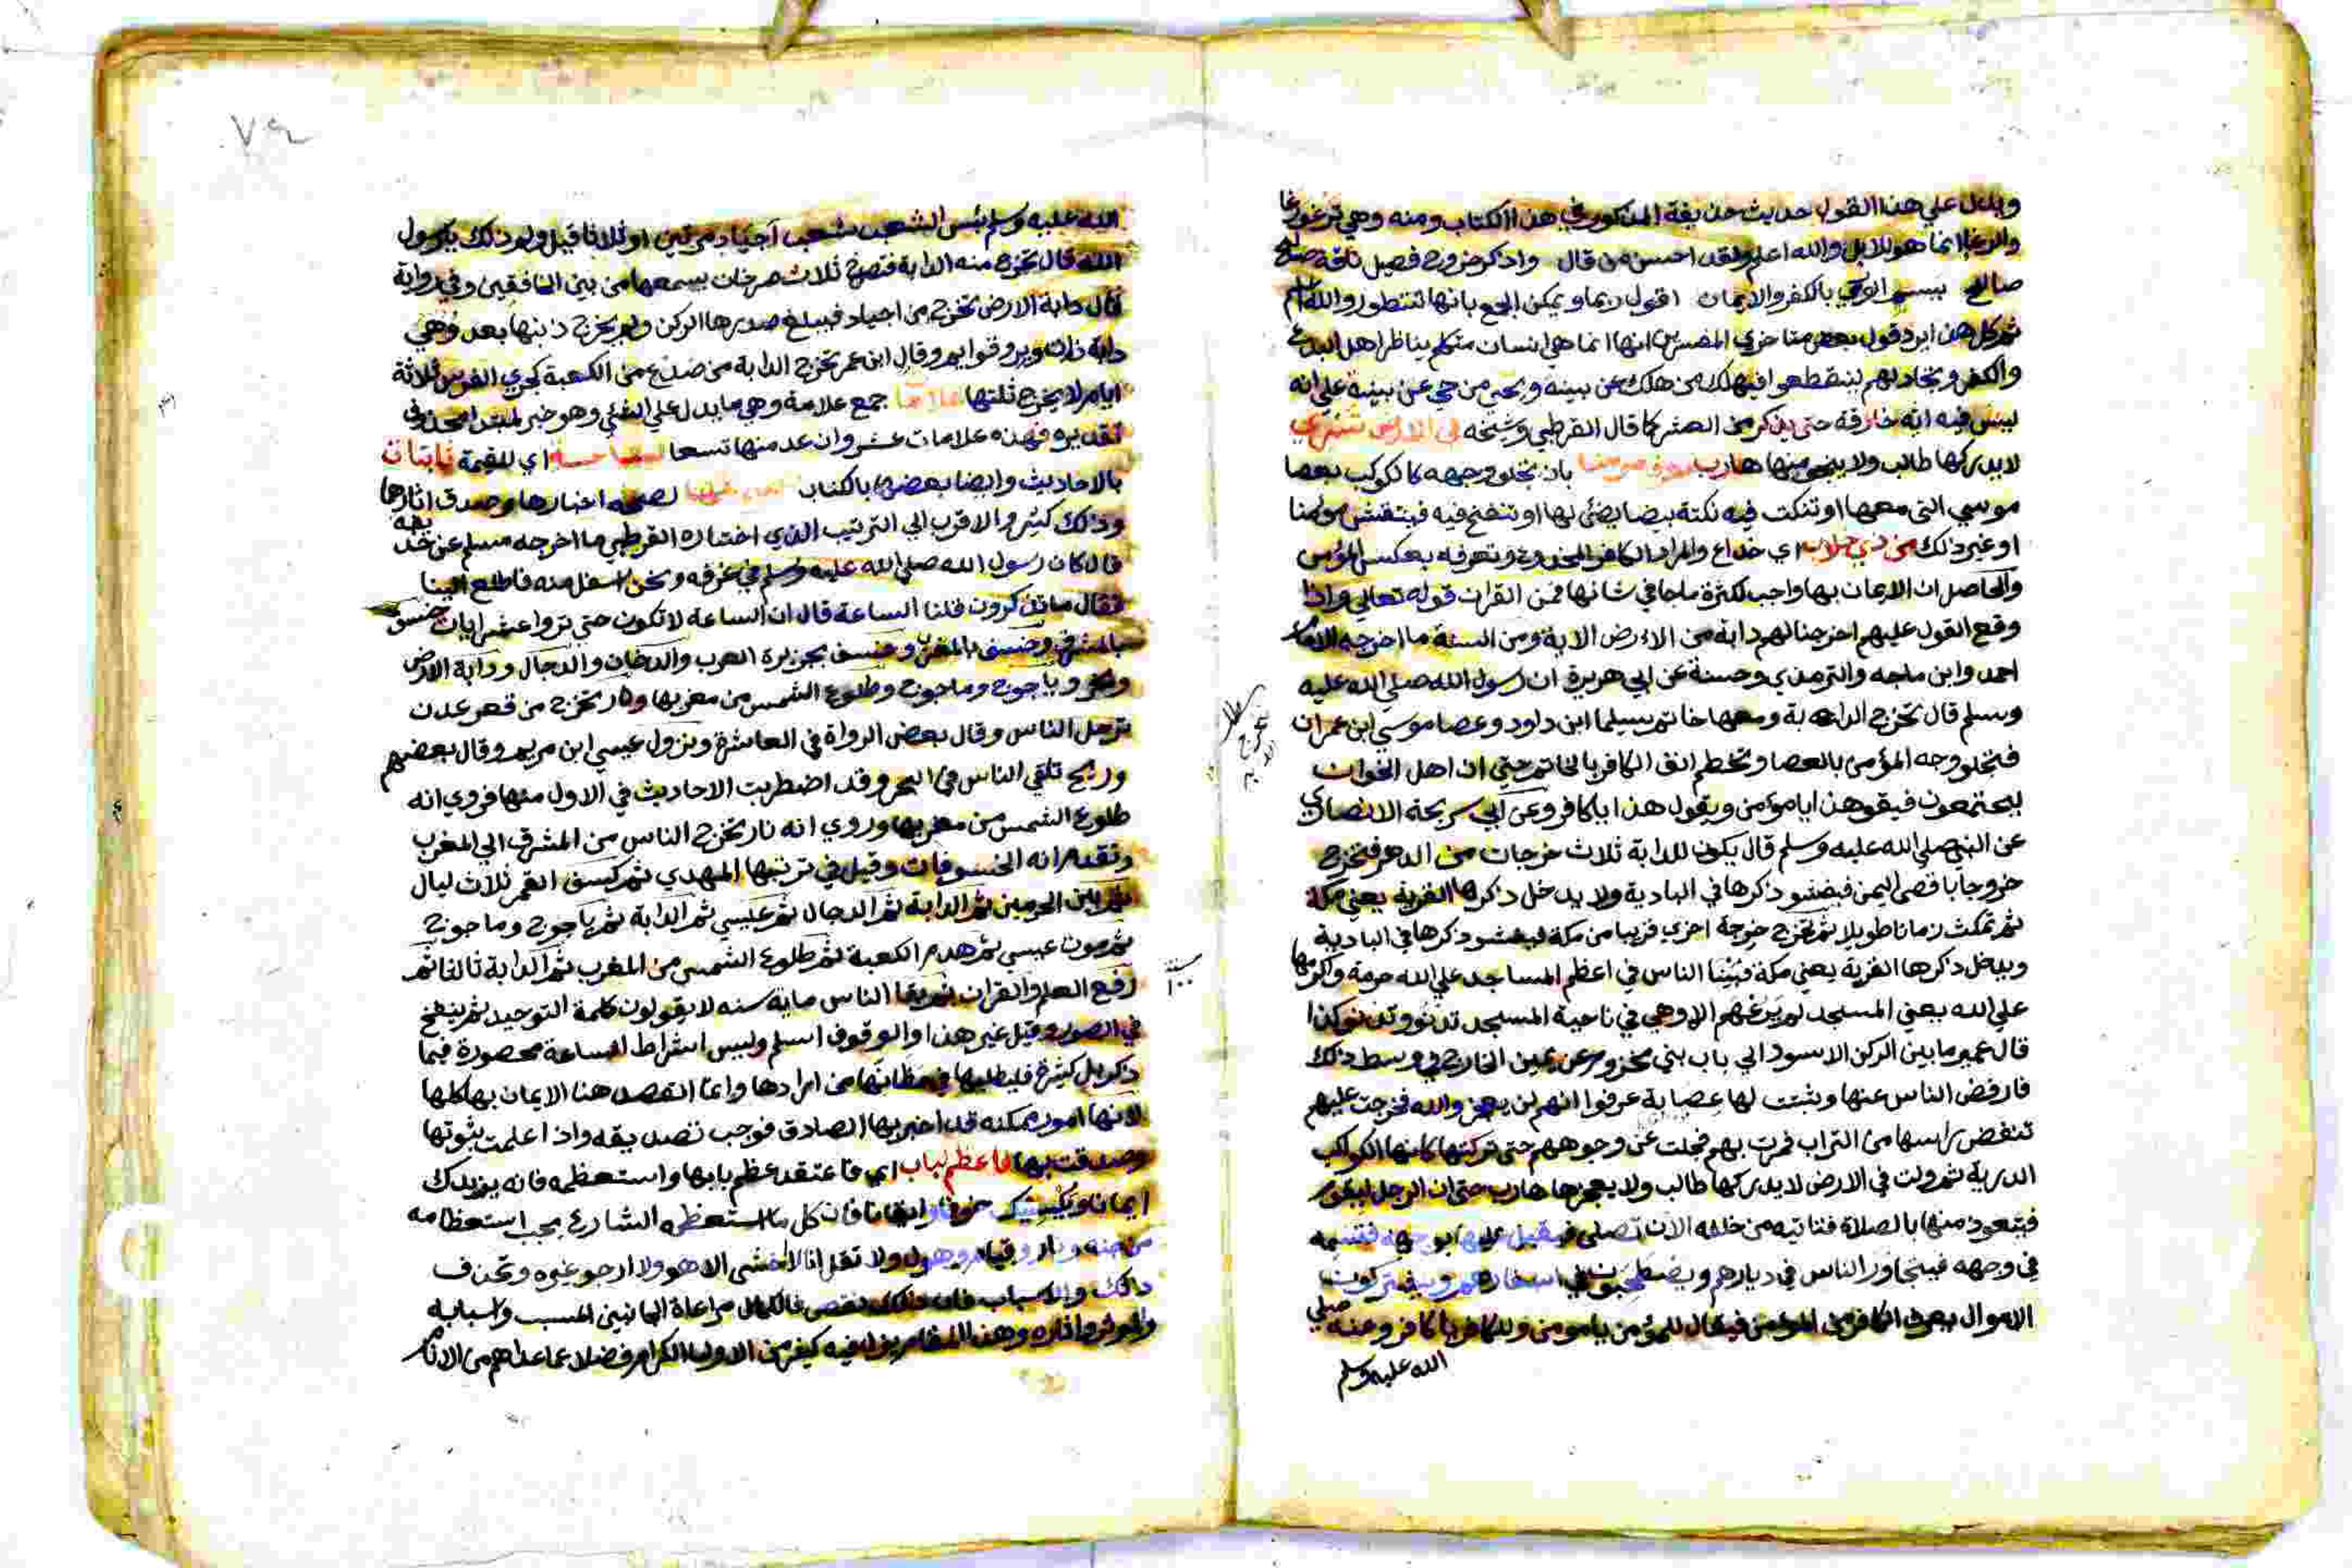 ويدل علي هذا القول حديث حذيفة المذكور في هذا الكتاب ومنه وهي ترغو رغا
والرغا انما هو للابل والله اعلم ولقد احسن من قال واذكر خروج فصيل ناقة صالح
صالح يسم الوري بالكفر والايمان اقول ربما ويمكن الجمع بانها تتطور والله اعلم
ثم كل هذا يرد قول بعض متاخري المفسرين انها انما هي انسان متكلم يناظر اهل البدع
والكفر ويجادلهم لينقطعوا فيهلك من هلك عن بينه ويحي من حي عن بينة علي انه
ليس فيه اية خارقة حتى يذكر من العشر كما قال القرطبي وشيخه في الارض تشتري
لايدركها طالب ولا ينجي منها هارب بان تجلو وجهه كالكوكب بعصا
موسي التى معها او تنكت فيه نكتة بيضا يضئ لها او تنفخ فيه فينتقش مومنا
او غير ذلك من ذي خلاب اي خداع والمراد الكافر المخدوع وتعرفه بعكس المؤمن
والحاصل ان الايمان بها واجب لكثرة ما جا في شانها فمن القران قوله تعالي واذا
وقع القول عليهم اخرجنا لهم دابة من الارض الاية ومن السنة ما اخرجه الامام
احمد وابن ماجه والترمذي وحسنة عن ابي هريرة ان رسول الله صلي الله عليه
وسلم قال تخرج الدابة ومعها خاتم سليما ابن داود وعصا موسي ابن عمران
فتجلو وجه المؤمن بالعصا وتخطم انف الكافر بالخاتم حتي ان اهل الخوان
ليجتمعون فيقو هذا يا مؤمن ويقول هذا يا كافر وعن ابي سريحة الانصاري
عن النبي صلي الله عليه وسلم قال يكون للدابة ثلاث خرجات من الدهر فتخرج
خروجا باقصى اليمن فيفشو ذكرها في البادية ولا يدخل ذكرها القرية يعني مكة
ثم تمكث زمانا طويلا ثم تخرج خرجة اخري قريبا من مكة فيفشو ذكرها في البادية
ويدخل ذكرها القرية يعني مكة فبينا الناس في اعظم المساجد علي الله حرمة واكرمها
علي الله يعني المسجد لم يرعهم الا وهي في ناحية المسجد تدنو وتدنو كذا
قال عمير ما بين الركن الاسود الي باب بني مخزوم عن يمين الخارج في وسط ذلك
فارفض الناس عنها وثبتت لها عصابة عرفوا انهم لن يعجزوا الله فخرجت عليهم
تنفض راسها من التراب فمرت بهم فجلت عن وجوههم حتى تركتها كانها الكواكب
الدرية ثم ولت في الارض لا يدركها طالب ولا يعجزها هارب حتى ان الرجل ليقوم
فيتعود منها بالصلاة فتاتيه من خلفه الان تصلي فيقبل عليها بوجهه فتسمه
في وجهه فيتجاور الناس في ديارهم ويصطحبون في اسفارهم ويشتركون
الاموال يعرف الكافر من المؤمن فيقال للمؤمن يا مومن وللكافر يا كافر وعنه صلي
الله عليه وسلم
٧٤
الله عليه وسلم بئس الشعب شعب اجياد مرتين او ثلاثا قيل ولم ذلك يا رسول
الله قال تخرج منه الدابة فتصرخ ثلاث صرخات يسمعها من بين الخافقين وفي رواية
قال دابة الارض تخرج من اجياد فيبلغ صدرها الركن ولم يخرج ذنبها بعد وهي
دابة ذات وبر وقوايم وقال ابن عمر تخرج الدابة من صدع من الكعبة كجري الفرس ثلاثة
ايام لا يخرج ثلثها جمع علامة وهي ما يدل علي الشئ وهو خبر لمبتدا محذوف
تقديره فهذه علامات عشر وان عد منها تسعا اي للقيمة ثابتات
بالاحاديث وايضا بعضها بالكتاب لصحة اخبارها وصدق اثارها
وذلك كثير والاقرب الي الترتيب الذي اختاره القرطبي ما اخرجه مسلم عن حذيفه
قال كان رسول الله صلي الله عليه وسلم في غرفه ونحن اسفل منه فاطلع الينا
فقال ما تذكرون قلنا الساعة قال ان الساعة لا تكون حتى تروا عشر ايات خسف
بالمشرق وخسف بالمغرب وخسف بجزيرة العرب والدخان والدجال ودابة الارض
وياجوج وماجوج وطلوع الشمس من مغربها ونار تخرج من قعر عدن
ترحل الناس وقال بعض الرواة في العاشرة ونزول عيسي ابن مريم وقال بعضهم
وريح تلقي الناس في البحر وقد اضطربت الاحاديث في الاول منها فروي انه
طلوع الشمس من مغربها وروي انه نار تخرج الناس من المشرق الي المغرب
وتقدم انه الخسوفات وقيل في ترتيبها المهدي ثم كسف القمر ثلاث ليال
ثم بين الحرمين ثم الدابة ثم الدجال ثم عيسي ثم الدابة ثم ياجوج وماجوج
ثم موت عيسي ثم هدم الكعبة ثم طلوع الشمس من المغرب ثم الدابة ثالثا ثم
رفع العلم والقران ثم بقا الناس ماية سنه لا يقولون كلمة التوحيد ثم ينفخ
في الصور وقيل غير هذا والوقوف اسلم وليس اشراط الساعة محصورة فيما
ذكر بل كثيرة فليطلبها في مظانها من ارادها وانما القصد هنا الايمان بها كلها
لانها امور ممكنه قد اخبر بها الصادق فوجب تصديقه واذا علمت ثبوتها
وصدقت بها فاعظم لباب اي فاعتقد عظم بابها واستعظمه فانه يزيدك
ايمانا خوفا وايقانا فان كل ما استعظمه الشارع يجب استعظامه
من جنه ونار وقيام وهول ولا تقل انا لا اخشى الا هو ولا ارجو غيره وتحذف
ذلك والاسباب فان ذلك نقص فالكمال مراعاة الجانبين المسبب واسبابه
والموثر واثاره وهذا المقام يزل فيه كثير من الاوليا الكرام فضلا عما عداهم من الانام